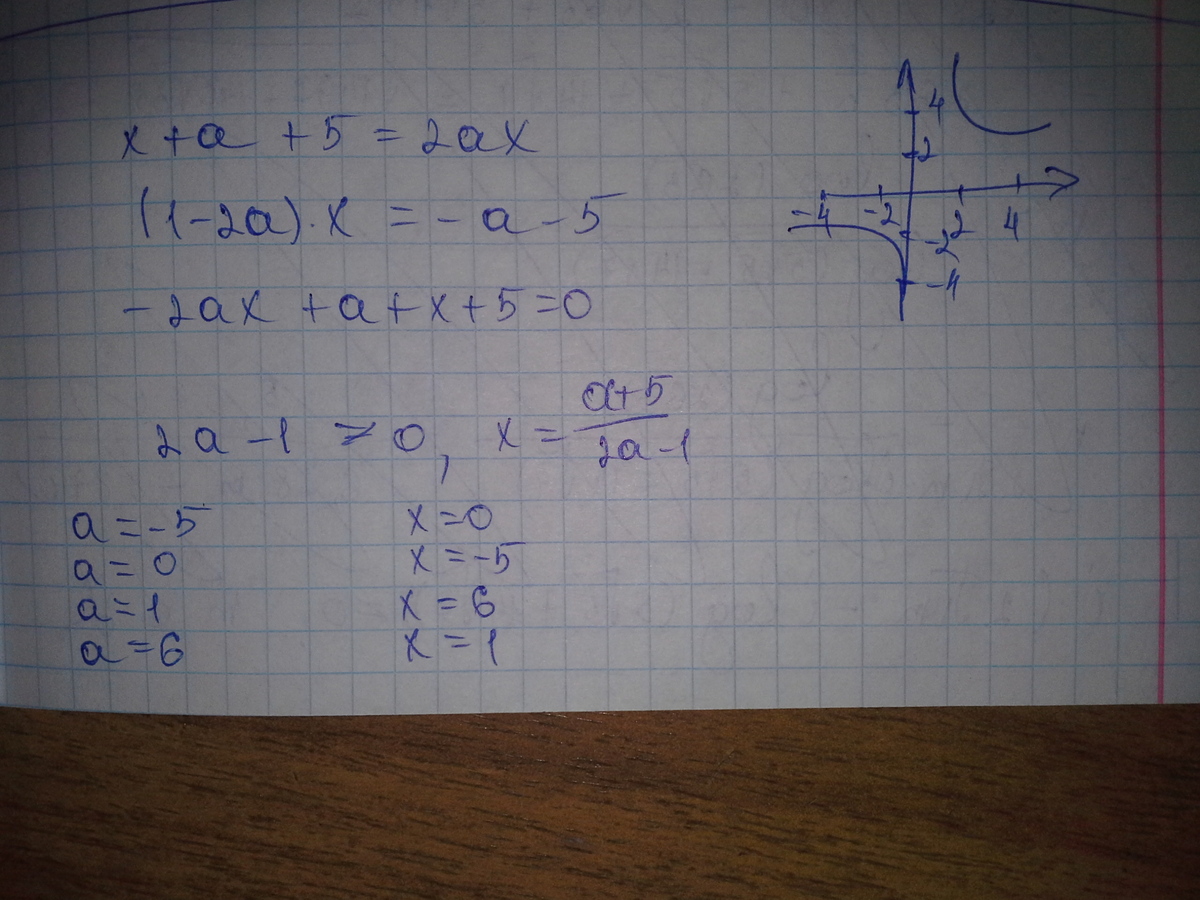 x + a + 5 = 2ax
(1-2a)·x = -a-5
-2ax + a + x + 5 = 0
2a - 1 ≠ 0, x = (a+5)/(2a-1)
a = -5 x = 0
a = 0 x = -5
a = 1 x = 6
a = 6 x = 1
4
2
-4 -2 2 4
-2
-4